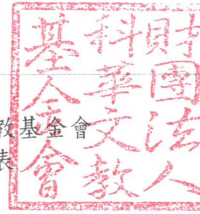 財團法人
科華文教
基金會
教基金會
表